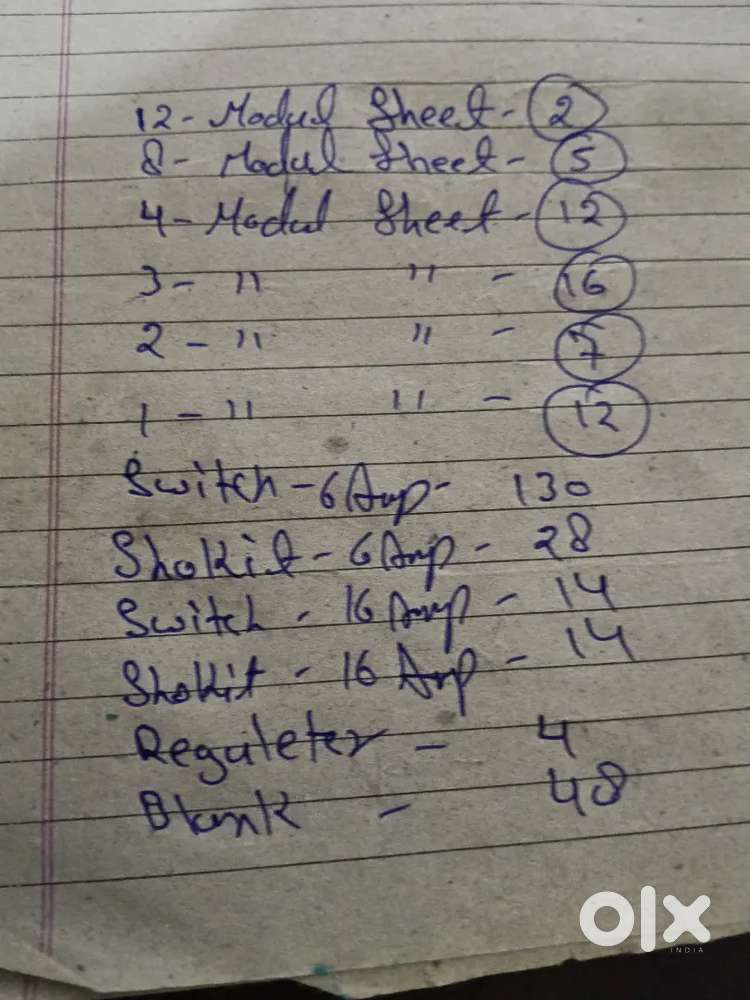 12 - Modul Sheet - 2
8 - Modul Sheet - 5
4 - Modul Sheet - 12
3 - " " - 16
2 - " " - 7
1 - " " - 12
Switch - 6 Amp - 130
Shokit - 6 Amp - 28
Switch - 16 Amp - 14
Shokit - 16 Amp - 14
Reguleter - 4
Blank - 48
olx
INDIA